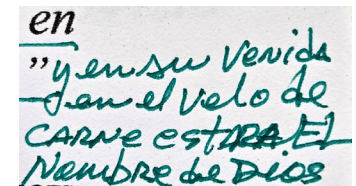 en
"y en su venida
y en el velo de
CARNe estARA EL
Nombre de Dios